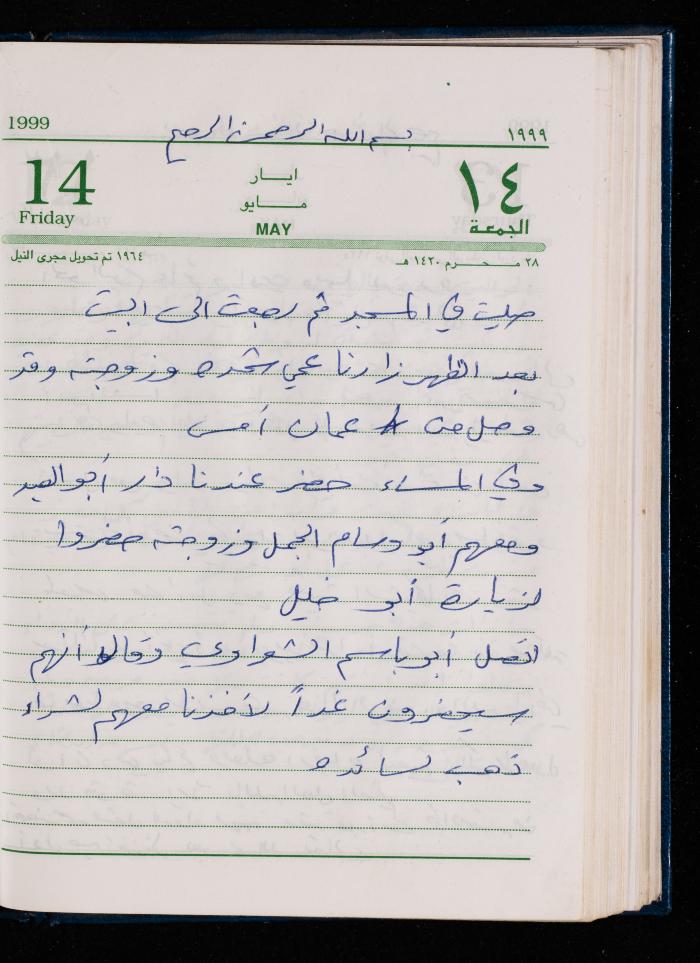 1999
١٩٩٩
بسم الله الرحمن الرحيم
14
Friday
ايار
مـايو
MAY
١٤
الجمعة
١٩٦٤ تم تحويل مجرى النيل
٢٨ محرم ١٤٢٠ هـ
صليت في المسجد ثم رجعت الى البيت
بعد الظهر زارنا عمي شحده وزوجته وقد
وصل من عمان أمس
وفي المساء حضر عندنا دار أبو العبد
ومعهم أبو وسام الجمل وزوجته حضروا
لزيارة أبو خليل
اتصل أبو باسم الشواوي وقال أنهم
سيحضرون غداً لأخذنا معهم لشراء
ذهب لسائده